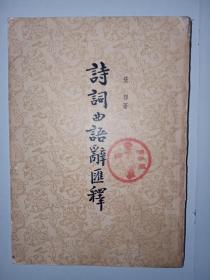 張相著
詩詞曲語辭匯釋